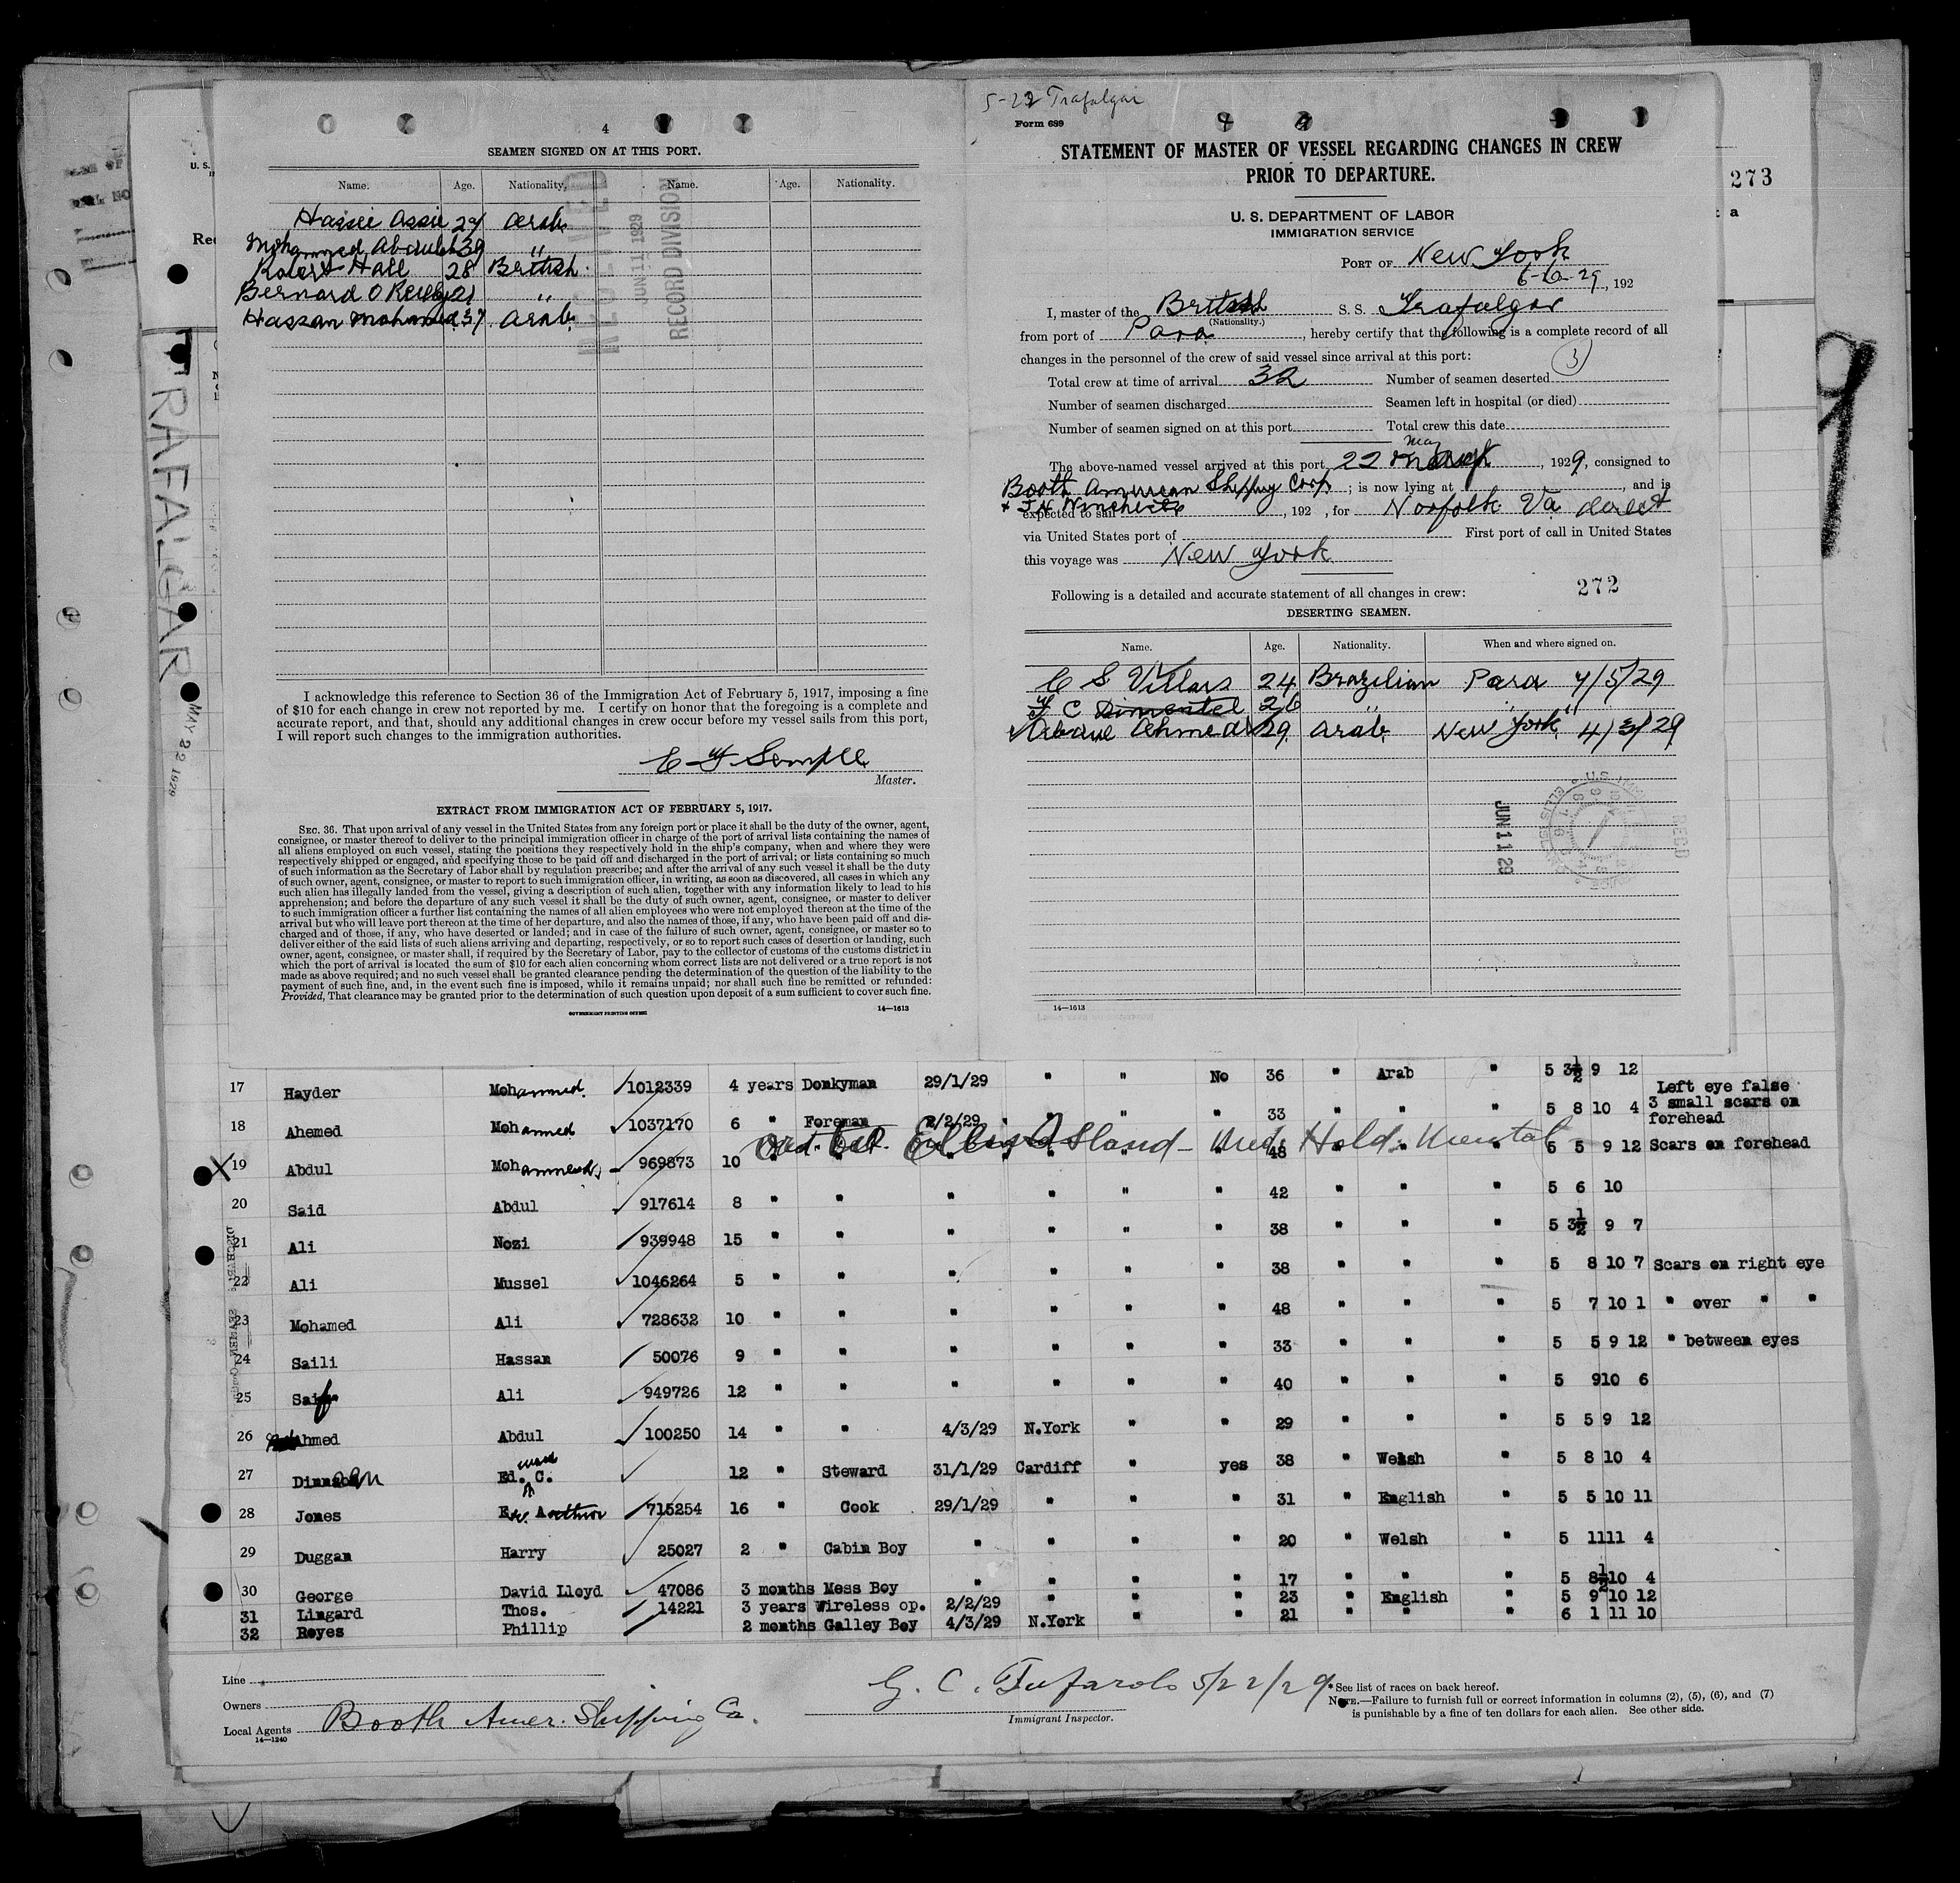 4
SEAMEN SIGNED ON AT THIS PORT.
Name. Age. Nationality. Name. Age. Nationality.
Hassie Assie 29 Arab
Mohammed Abdulah 39 "
Robert Hall 28 British
Bernard O Reilly 21 "
Hassan Mohamed 37 Arab
RECEIVED
JUN 11 1929
RECORD DIVISION
I acknowledge this reference to Section 36 of the Immigration Act of February 5, 1917, imposing a fine
of $10 for each change in crew not reported by me. I certify on honor that the foregoing is a complete and
accurate report, and that, should any additional changes in crew occur before my vessel sails from this port,
I will report such changes to the immigration authorities.
Master.
EXTRACT FROM IMMIGRATION ACT OF FEBRUARY 5, 1917.
SEC. 36. That upon arrival of any vessel in the United States from any foreign port or place it shall be the duty of the owner, agent,
consignee, or master thereof to deliver to the principal immigration officer in charge of the port of arrival lists containing the names of
all aliens employed on such vessel, stating the positions they respectively hold in the ship's company, when and where they were
respectively shipped or engaged, and specifying those to be paid off and discharged in the port of arrival; or lists containing so much
of such information as the Secretary of Labor shall by regulation prescribe; and after the arrival of any such vessel it shall be the duty
of such owner, agent, consignee, or master to report to such immigration officer, in writing, as soon as discovered, all cases in which any
such alien has illegally landed from the vessel, giving a description of such alien, together with any information likely to lead to his
apprehension; and before the departure of any such vessel it shall be the duty of such owner, agent, consignee, or master to deliver
to such immigration officer a further list containing the names of all alien employees who were not employed thereon at the time of the
arrival but who will leave port thereon at the time of her departure, and also the names of those, if any, who have been paid off and dis-
charged and of those, if any, who have deserted or landed; and in case of the failure of such owner, agent, consignee, or master so to
deliver either of the said lists of such aliens arriving and departing, respectively, or so to report such cases of desertion or landing, such
owner, agent, consignee, or master shall, if required by the Secretary of Labor, pay to the collector of customs of the customs district in
which the port of arrival is located the sum of $10 for each alien concerning whom correct lists are not delivered or a true report is not
made as above required; and no such vessel shall be granted clearance pending the determination of the question of the liability to the
payment of such fine, and, in the event such fine is imposed, while it remains unpaid; nor shall such fine be remitted or refunded:
Provided, That clearance may be granted prior to the determination of such question upon deposit of a sum sufficient to cover such fine.
GOVERNMENT PRINTING OFFICE 14—1613
5-22 Trafalgar
Form 689
STATEMENT OF MASTER OF VESSEL REGARDING CHANGES IN CREW
PRIOR TO DEPARTURE.
U. S. DEPARTMENT OF LABOR
IMMIGRATION SERVICE
PORT OF New York
6-6-29, 192
I, master of the British S. S. Trafalgar
(Nationality.)
from port of Para, hereby certify that the following is a complete record of all
changes in the personnel of the crew of said vessel since arrival at this port:
Total crew at time of arrival 32 Number of seamen deserted 3
Number of seamen discharged Seamen left in hospital (or died)
Number of seamen signed on at this port Total crew this date
May
The above-named vessel arrived at this port 22, 1929, consigned to
Booth American Shipping Corp; is now lying at, and is
& J H Winchester
expected to sail, 192 , for Norfolk Va direct
via United States port of First port of call in United States
this voyage was New York
Following is a detailed and accurate statement of all changes in crew: 272
DESERTING SEAMEN.
Name. Age. Nationality. When and where signed on.
C S Villars 24 Brazilian Para 4/5/29
F C Pimentel 26 " " "
Ahmed 29 Arab New York 4/3/29
JUN 11 29
14—1613
273
TRAFALGAR
MAY 22 1929
17 Hayder Mohammed 1012339 4 years Donkyman 29/1/29 " " No 36 " Arab " 5 3½ 9 12 Left eye false
18 Ahemed Mohamed 1037170 6 " Foreman 2/2/29 " " " 33 " " " 5 8 10 4 3 small scars on
forehead
Ellis Island - Med. Hold. Mental
19 Abdul Mohammed 969873 10 " " " " " " 48 " " " 5 5 9 12 Scars on forehead
20 Said Abdul 917614 8 " " " " " " 42 " " " 5 6 10
21 Ali Nozi 939948 15 " " " " " " 38 " " " 5 3½ 9 7
22 Ali Mussel 1046264 5 " " " " " " 38 " " " 5 8 10 7 Scars on right eye
23 Mohamed Ali 728632 10 " " " " " " 48 " " " 5 7 10 1 " over " "
24 Saili Hassan 50076 9 " " " " " " 33 " " " 5 5 9 12 " between eyes
25 Saif Ali 949726 12 " " " " " " 40 " " " 5 9 10 6
26 Ahmed Abdul 100250 14 " " 4/3/29 N.York " " 29 " " " 5 5 9 12
27 Ed. ward C. 12 " Steward 31/1/29 Cardiff " yes 38 " Welsh " 5 8 10 4
28 Jones Arthur 715254 16 " Cook 29/1/29 " " " 31 " English " 5 5 10 11
29 Duggan Harry 25027 2 " Cabin Boy " " " " 20 " Welsh " 5 11 11 4
30 George David Lloyd 47086 3 months Mess Boy " " " " 17 " " " 5 8½ 10 4
31 Lingard Thos. 14221 3 years Wireless op. 2/2/29 " " " 23 " English " 5 9 10 12
32 Reyes Phillip 2 months Galley Boy 4/3/29 N.York " " 21 " " " 6 1 11 10
Line
Owners
Local Agents Booth Amer. Shipping Co.
14—1240
G. C. Tufarolo 5/22/29
Immigrant Inspector.
* See list of races on back hereof.
NOTE.—Failure to furnish full or correct information in columns (2), (5), (6), and (7)
is punishable by a fine of ten dollars for each alien. See other side.